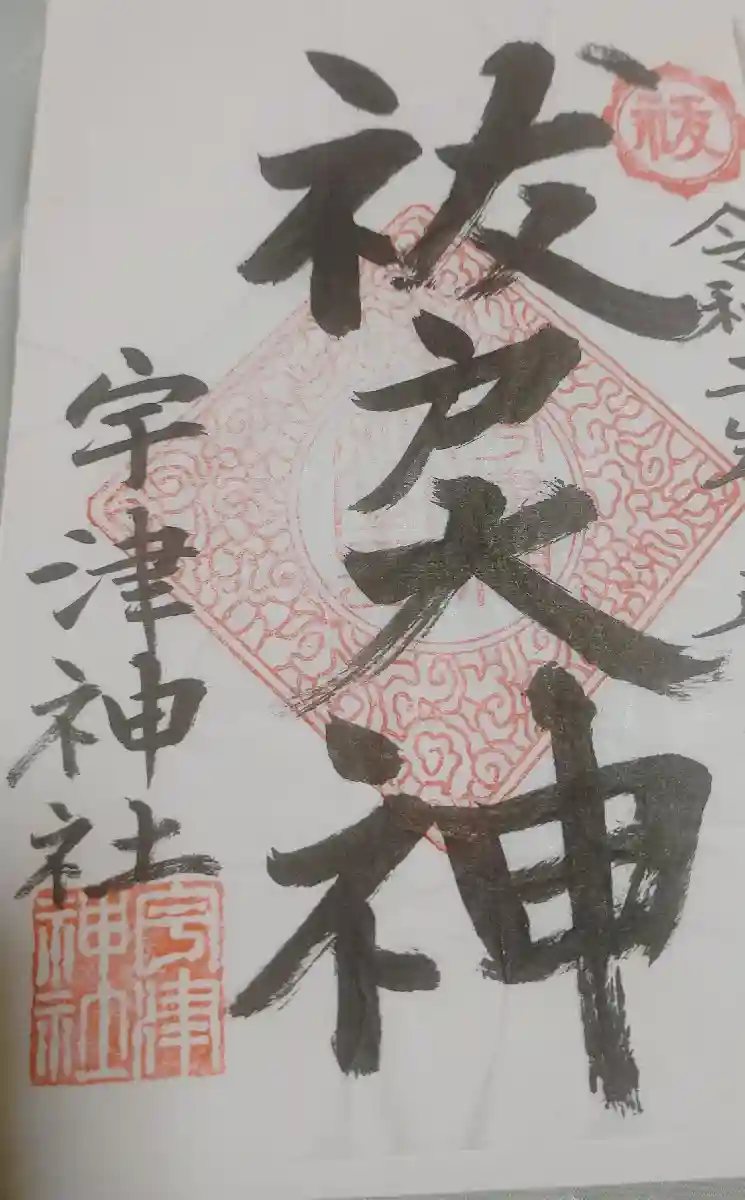 令和二年
祓戸大神
宇津神社
祓
宇津
神社